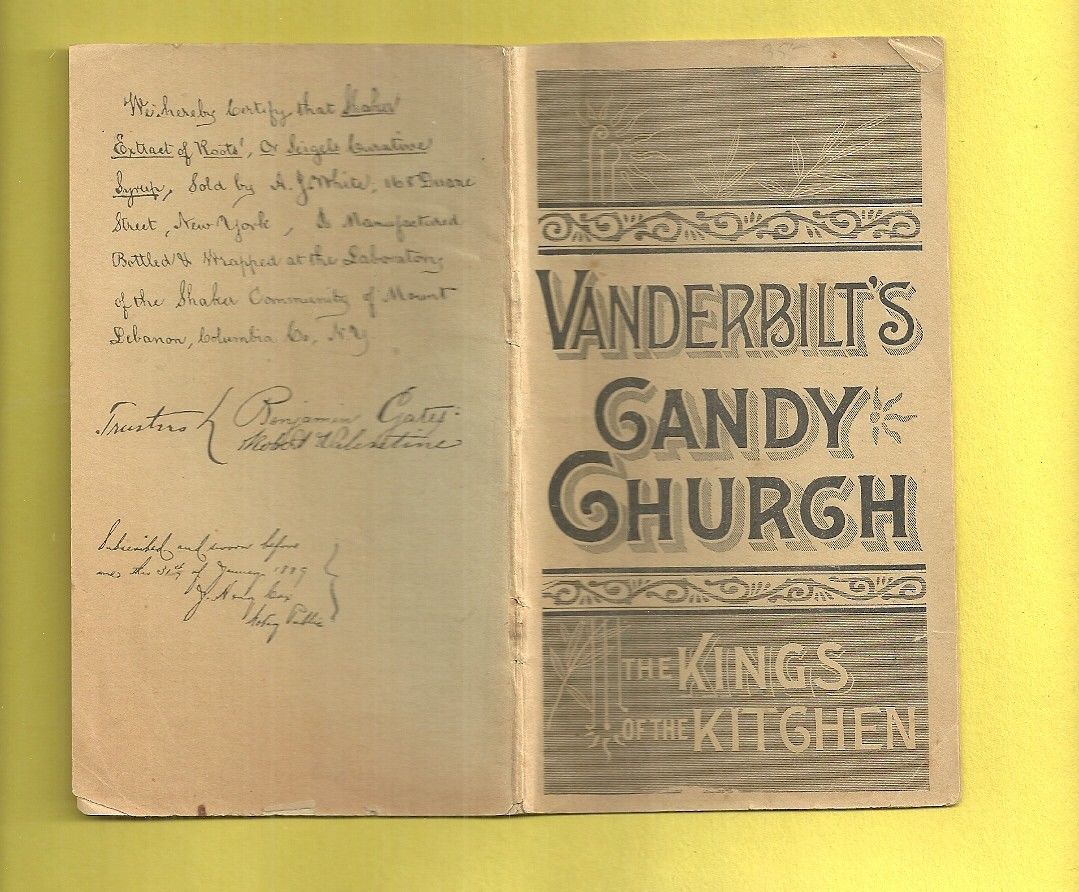 We hereby Certify that Shaker
Extract of Roots', Or Seigels Curative
Syrup, Sold by A. J. White, 168 Duane
Street, New York, Is Manufactured
Bottled & Wrapped at the Laboratory
of the Shaker Community of Mount
Lebanon, Columbia Co, N.Y.
Trustees { Benjamin Gates
Robert Valentine
Subscribed and sworn before
me this 31st of January 1889
Notary Public
VANDERBILT'S
CANDY
CHURCH
THE KINGS
OF THE KITCHEN